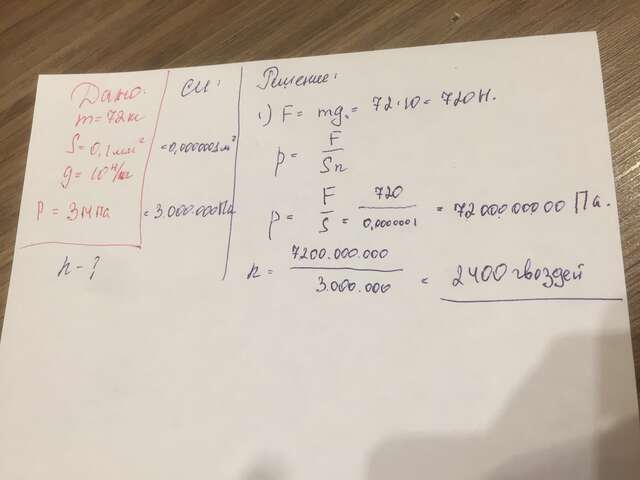 Дано:
m = 72 кг
S = 0,1 мм²
g = 10 Н/кг
P = 3 МПа
n - ?
СИ:
= 0,0000001 м²
= 3.000.000 Па
Решение:
1) F = mg = 72·10 = 720 Н.
p = F/Sn
p = F/S = 720/0,0000001 = 7200000000 Па.
n = 7200.000.000/3.000.000 = 2400 гвоздей